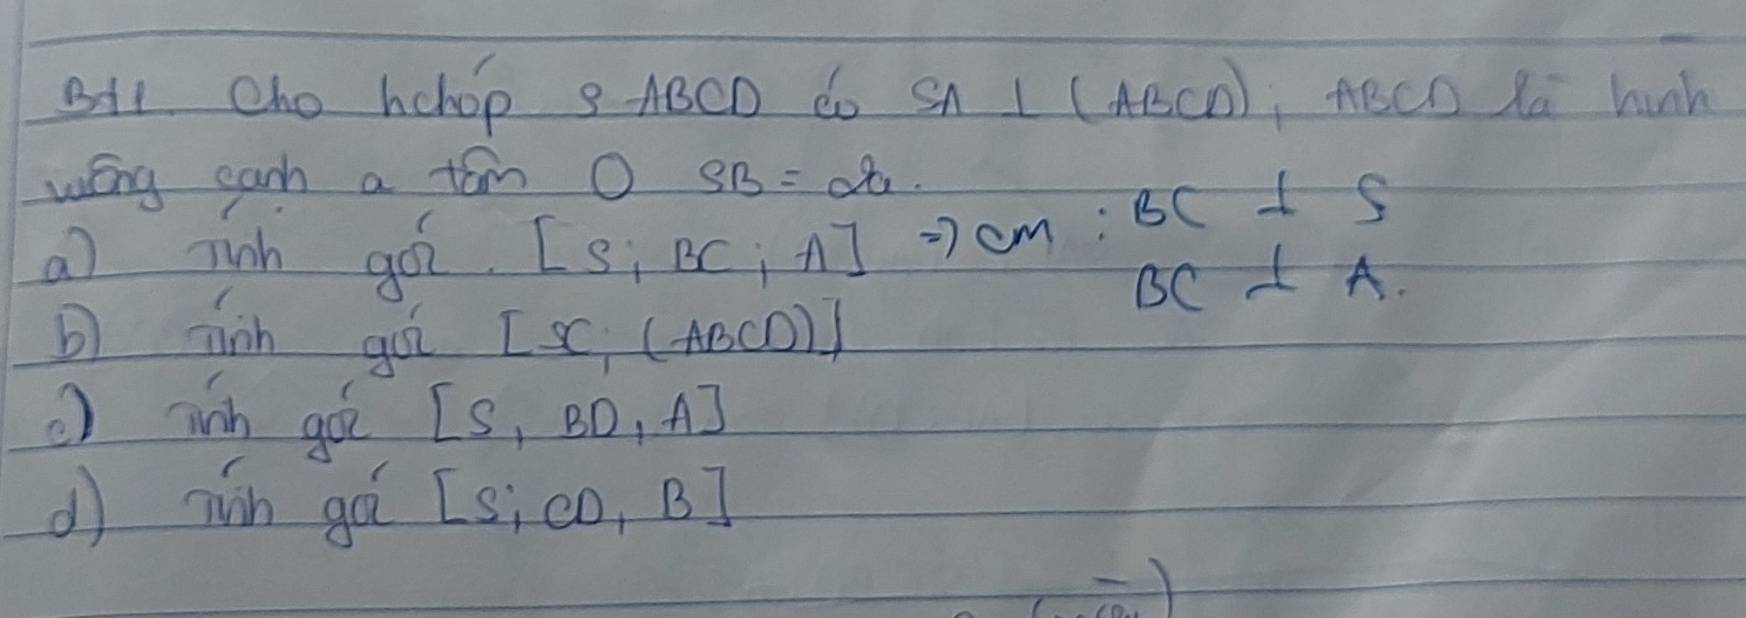 BT1. Cho hchóp S.ABCD có SA ⊥ (ABCD), ABCD là hình
vuông cạnh a tâm O SB = 2a.
a) Tính góc [S; BC; A] => CM : BC ⊥ S
BC ⊥ A.
b) Tính góc [SC; (ABCD)]
c) Tính góc [S, BD, A]
d) Tính góc [S; CD, B]